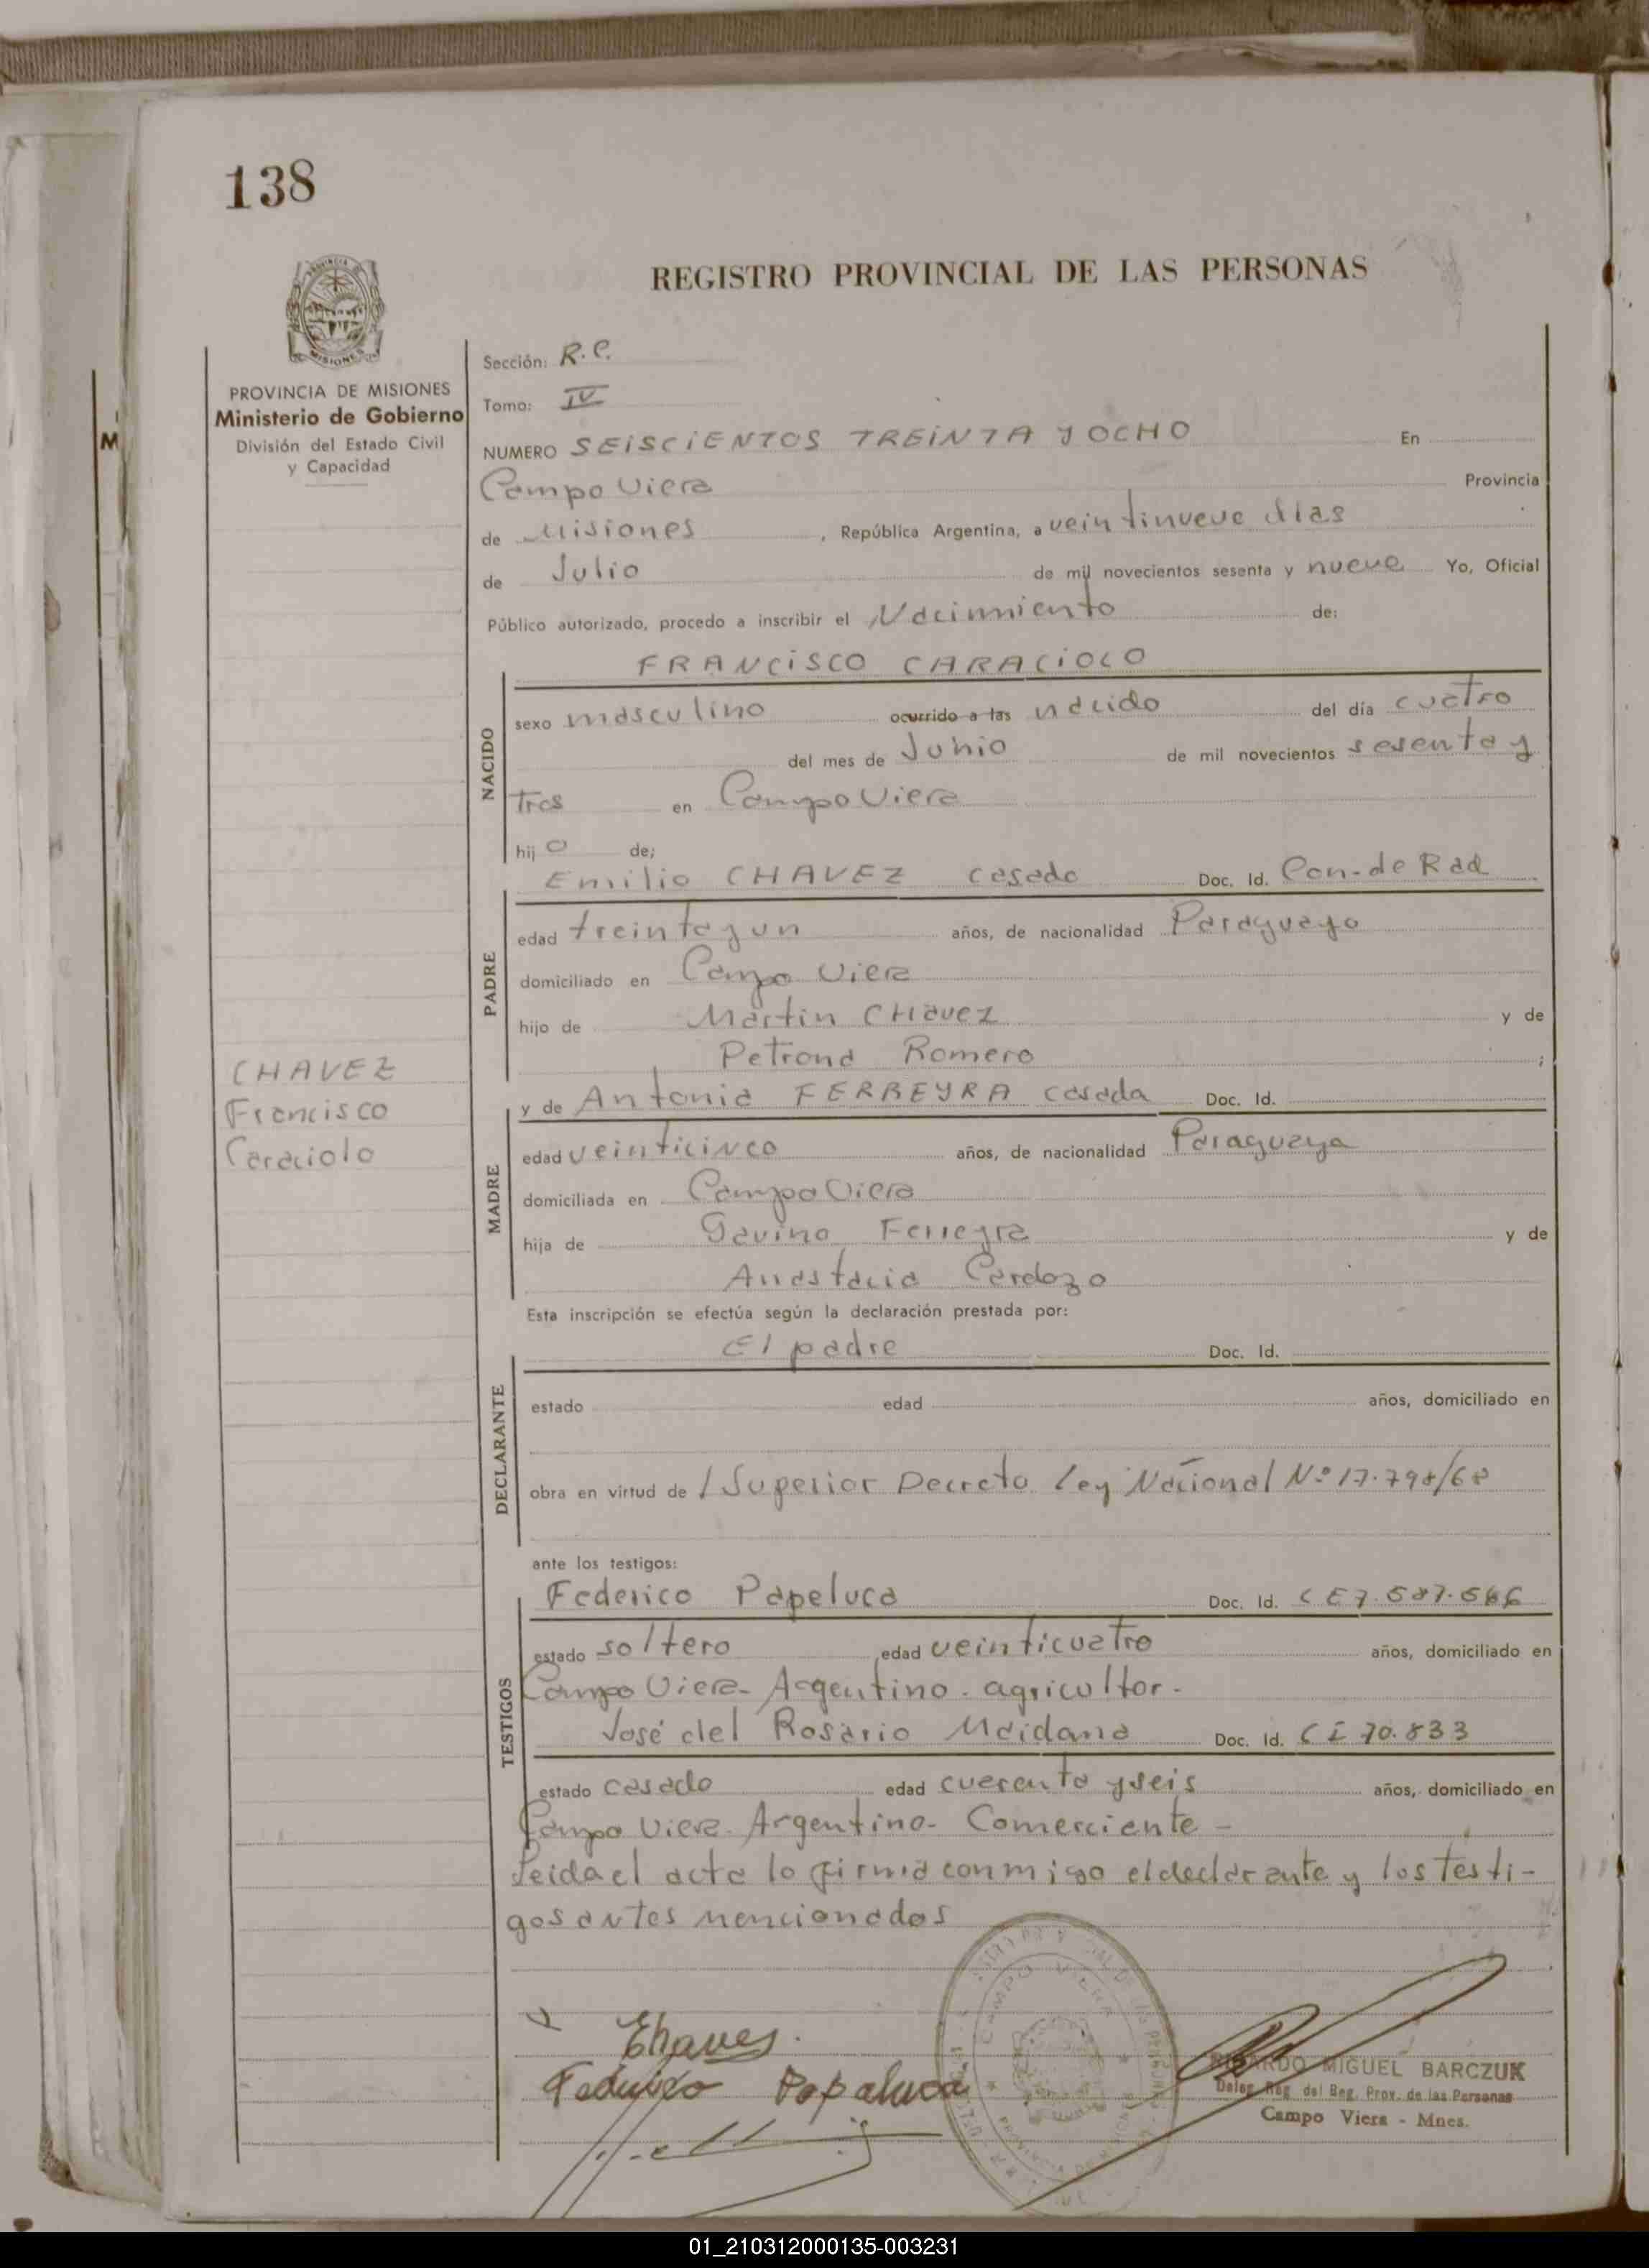 138
REGISTRO PROVINCIAL DE LAS PERSONAS
PROVINCIA DE MISIONES
Ministerio de Gobierno
División del Estado Civil
y Capacidad
Sección: R.C.
Tomo: IV
NUMERO SEISCIENTOS TREINTA Y OCHO En
Campo Viera Provincia
de Misiones , República Argentina, a veintinueve días
de Julio de mil novecientos sesenta y nueve Yo, Oficial
Público autorizado, procedo a inscribir el Nacimiento de:
FRANCISCO CARACIOLO
NACIDO
sexo masculino ocurrido a las nacido del día cuatro
del mes de Junio de mil novecientos sesenta y
Tres en Campo Viera
hijo de;
Emilio CHAVEZ casado Doc. Id. Con-de Rad
PADRE
edad treinta y un años, de nacionalidad Paraguayo
domiciliado en Campo Viera
hijo de Martin CHavez y de
Petrona Romero ;
CHAVEZ
Francisco
Caraciolo
y de Antonia FERREYRA casada Doc. Id.
MADRE
edad veinticinco años, de nacionalidad Paraguaya
domiciliada en Campo Viera
hija de Gavino Ferreyra y de
Anastacia Cardozo
Esta inscripción se efectúa según la declaración prestada por:
El padre Doc. Id.
DECLARANTE
estado edad años, domiciliado en
obra en virtud de / Superior Decreto Ley Nacional Nº 17.798/68
ante los testigos:
Federico Papeluca Doc. Id.
TESTIGOS
estado soltero edad veinticuatro años, domiciliado en
Campo Viera- Argentino- agricultor-
José del Rosario Maidana Doc. Id. CI 70.833
estado casado edad cuarenta y seis años, domiciliado en
Campo Viera- Argentino- Comerciante-
Leida el acta lo firma conmigo el declarante y los testi-
gos antes mencionados
Chaves
Federico Papaluca
CAMPO VIERA
RICARDO MIGUEL BARCZUK
Deleg. Reg. del Reg. Prov. de las Personas
Campo Viera - Mnes.
01_210312000135-003231